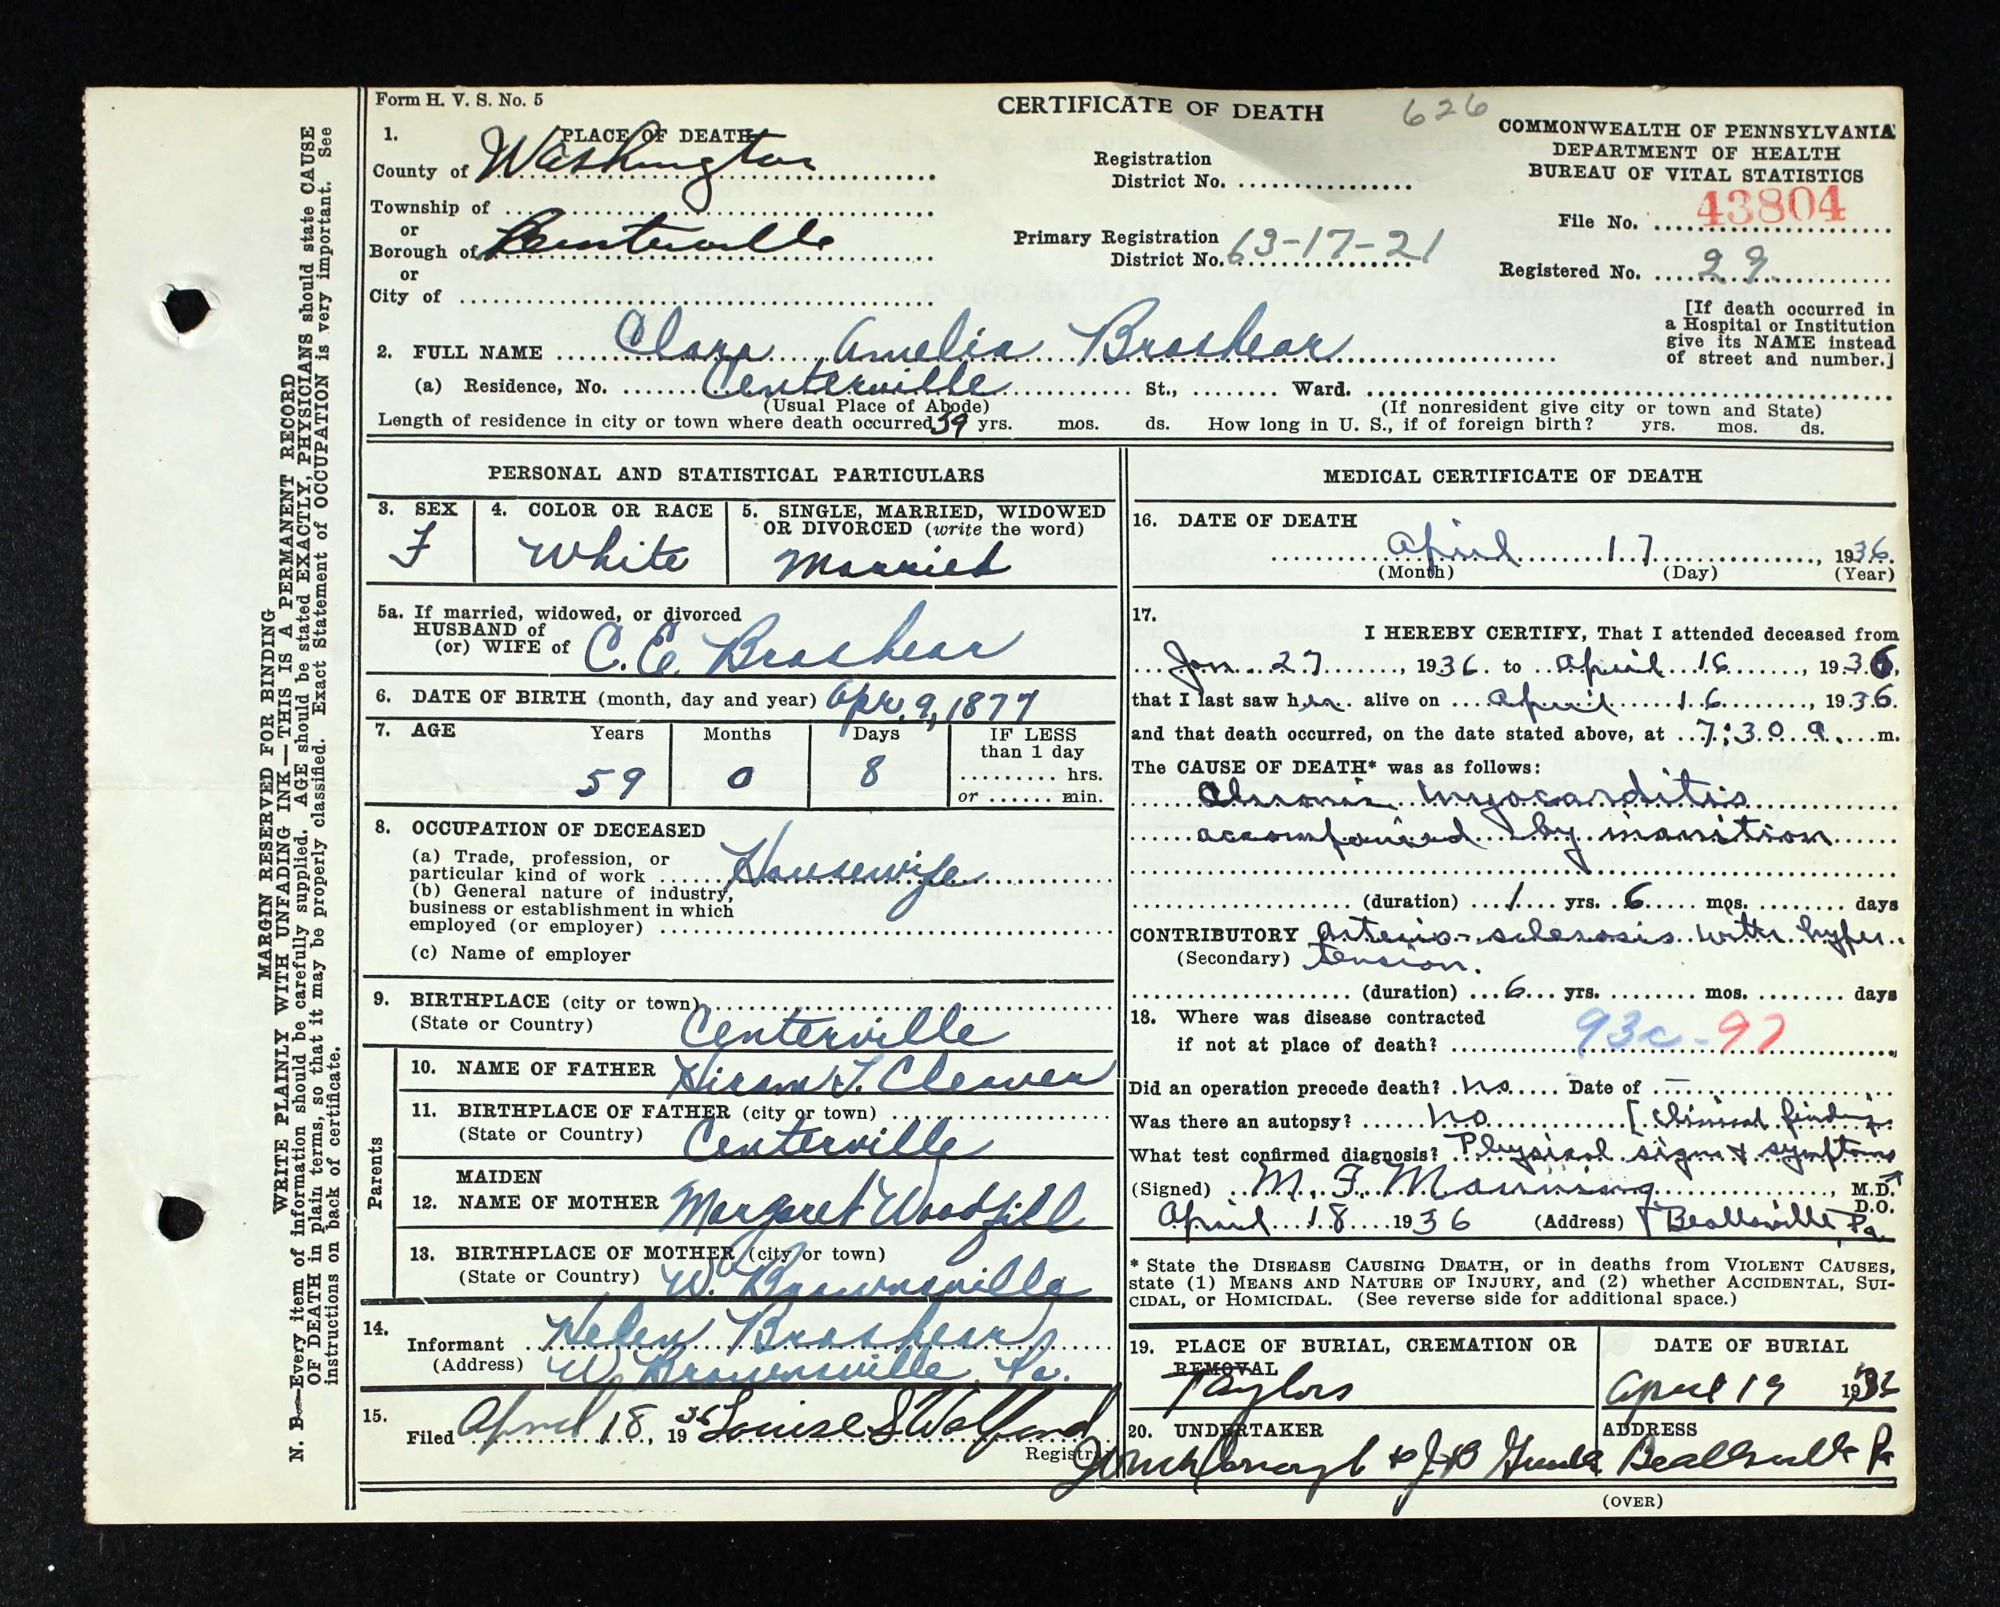 Form H. V. S. No. 5
CERTIFICATE OF DEATH
626
COMMONWEALTH OF PENNSYLVANIA
DEPARTMENT OF HEALTH
BUREAU OF VITAL STATISTICS
1. PLACE OF DEATH
County of Washington
Township of
or
Borough of Centerville
or
City of
Registration
District No.
Primary Registration
District No. 63-17-21
File No. 43804
Registered No. 29
[If death occurred in
a Hospital or Institution
give its NAME instead
of street and number.]
2. FULL NAME Clara Amelia Brashear
(a) Residence, No. Centerville St., Ward.
(Usual Place of Abode) (If nonresident give city or town and State)
Length of residence in city or town where death occurred 59 yrs. mos. ds. How long in U. S., if of foreign birth? yrs. mos. ds.
PERSONAL AND STATISTICAL PARTICULARS
3. SEX
F
4. COLOR OR RACE
White
5. SINGLE, MARRIED, WIDOWED
OR DIVORCED (write the word)
Married
5a. If married, widowed, or divorced
HUSBAND of
(or) WIFE of C. E. Brashear
6. DATE OF BIRTH (month, day and year) Apr. 9, 1877
7. AGE Years Months Days IF LESS
than 1 day
59 0 8 hrs.
or min.
8. OCCUPATION OF DECEASED
(a) Trade, profession, or
particular kind of work Housewife
(b) General nature of industry,
business or establishment in which
employed (or employer)
(c) Name of employer
9. BIRTHPLACE (city or town)
(State or Country) Centerville
Parents
10. NAME OF FATHER Hiram T. Cleaver
11. BIRTHPLACE OF FATHER (city or town)
(State or Country) Centerville
MAIDEN
12. NAME OF MOTHER Margaret Woodfill
13. BIRTHPLACE OF MOTHER (city or town)
(State or Country) W. Brownsville
14.
Informant Helen Brashear
(Address) W. Brownsville, Pa.
15.
Filed April 18, 1936 Louise S Wolford
Registrar
MEDICAL CERTIFICATE OF DEATH
16. DATE OF DEATH
April 17, 1936.
(Month) (Day) (Year)
17.
I HEREBY CERTIFY, That I attended deceased from
Jan. 27, 1936 to April 16, 1936,
that I last saw her alive on April 16, 1936.
and that death occurred, on the date stated above, at 7:30 a. m.
The CAUSE OF DEATH* was as follows:
Chronic myocarditis
accompanied by inanition
(duration) 1 yrs. 6 mos. days
CONTRIBUTORY Arterio-sclerosis with hyper-
(Secondary) tension.
(duration) 6 yrs. mos. days
18. Where was disease contracted
if not at place of death? 93c-97
Did an operation precede death? No Date of —
Was there an autopsy? No [Clinical findings
What test confirmed diagnosis? Physical signs & symptoms
(Signed) M. F. Manning, M.D.
D.O.
April 18 1936 (Address) Beallsville, Pa.
* State the DISEASE CAUSING DEATH, or in deaths from VIOLENT CAUSES,
state (1) MEANS AND NATURE OF INJURY, and (2) whether ACCIDENTAL, SUI-
CIDAL, or HOMICIDAL. (See reverse side for additional space.)
19. PLACE OF BURIAL, CREMATION OR
REMOVAL
Taylors
DATE OF BURIAL
April 19
20. UNDERTAKER
ADDRESS
Beallsville Pa
(OVER)
MARGIN RESERVED FOR BINDING
WRITE PLAINLY WITH UNFADING INK—THIS IS A PERMANENT RECORD
N. B.—Every item of information should be carefully supplied. AGE should be stated EXACTLY, PHYSICIANS should state CAUSE
OF DEATH in plain terms, so that it may be properly classified. Exact Statement of OCCUPATION is very important. See
instructions on back of certificate.